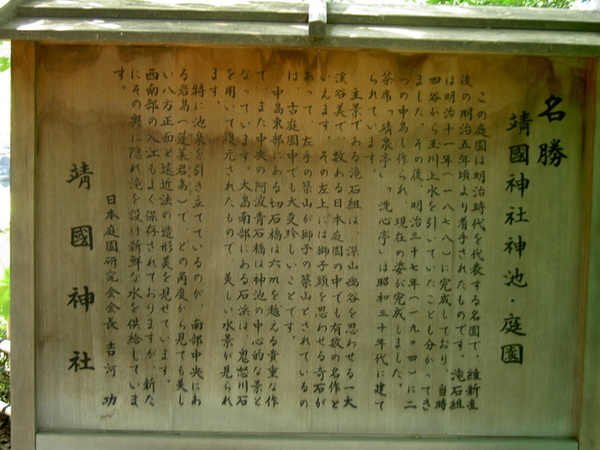 名勝
靖國神社神池・庭園
この庭園は明治時代を代表する名園で、維新直
後の明治五年頃より着手されたものです。滝石組
は明治十一年(一八七八)に完成しており、当時
四谷から玉川上水を引いていたことも分かってき
ました。その後、明治三十七年(一九〇四)に二
つの中島も作られ、現在の姿が完成しました。
茶席「靖泉亭」「洗心亭」は昭和三十年代に建て
られています。
主景である滝石組は、深山幽谷を思わせる一大
渓谷美で、数ある日本庭園の中でも有数の名作と
いえます。その左上には獅子頭を思わせる奇石が
あって、左手の築山が獅子の築山とされているの
は、古庭園中でも大変珍しいことです。
中島東部にある切石橋は六mを越える貴重な作
で、また中央の阿波青石橋は神池の中心的な景と
なっています。大島南部にある石浜は、鬼怒川石
を用いて復元されたもので、美しい水景が見られ
ます。
特に池泉を引き立てているのが、南部中央にあ
る岩島(蓬莱岩島)で、どの角度から見ても美し
い八方正面と遠近法の造形美を見せています。
西南部の入江もよく保存されておりますが、新た
にその奥に隠れ滝を設け新鮮な水を供給していま
す。
日本庭園研究会会長 吉河 功
靖國神社